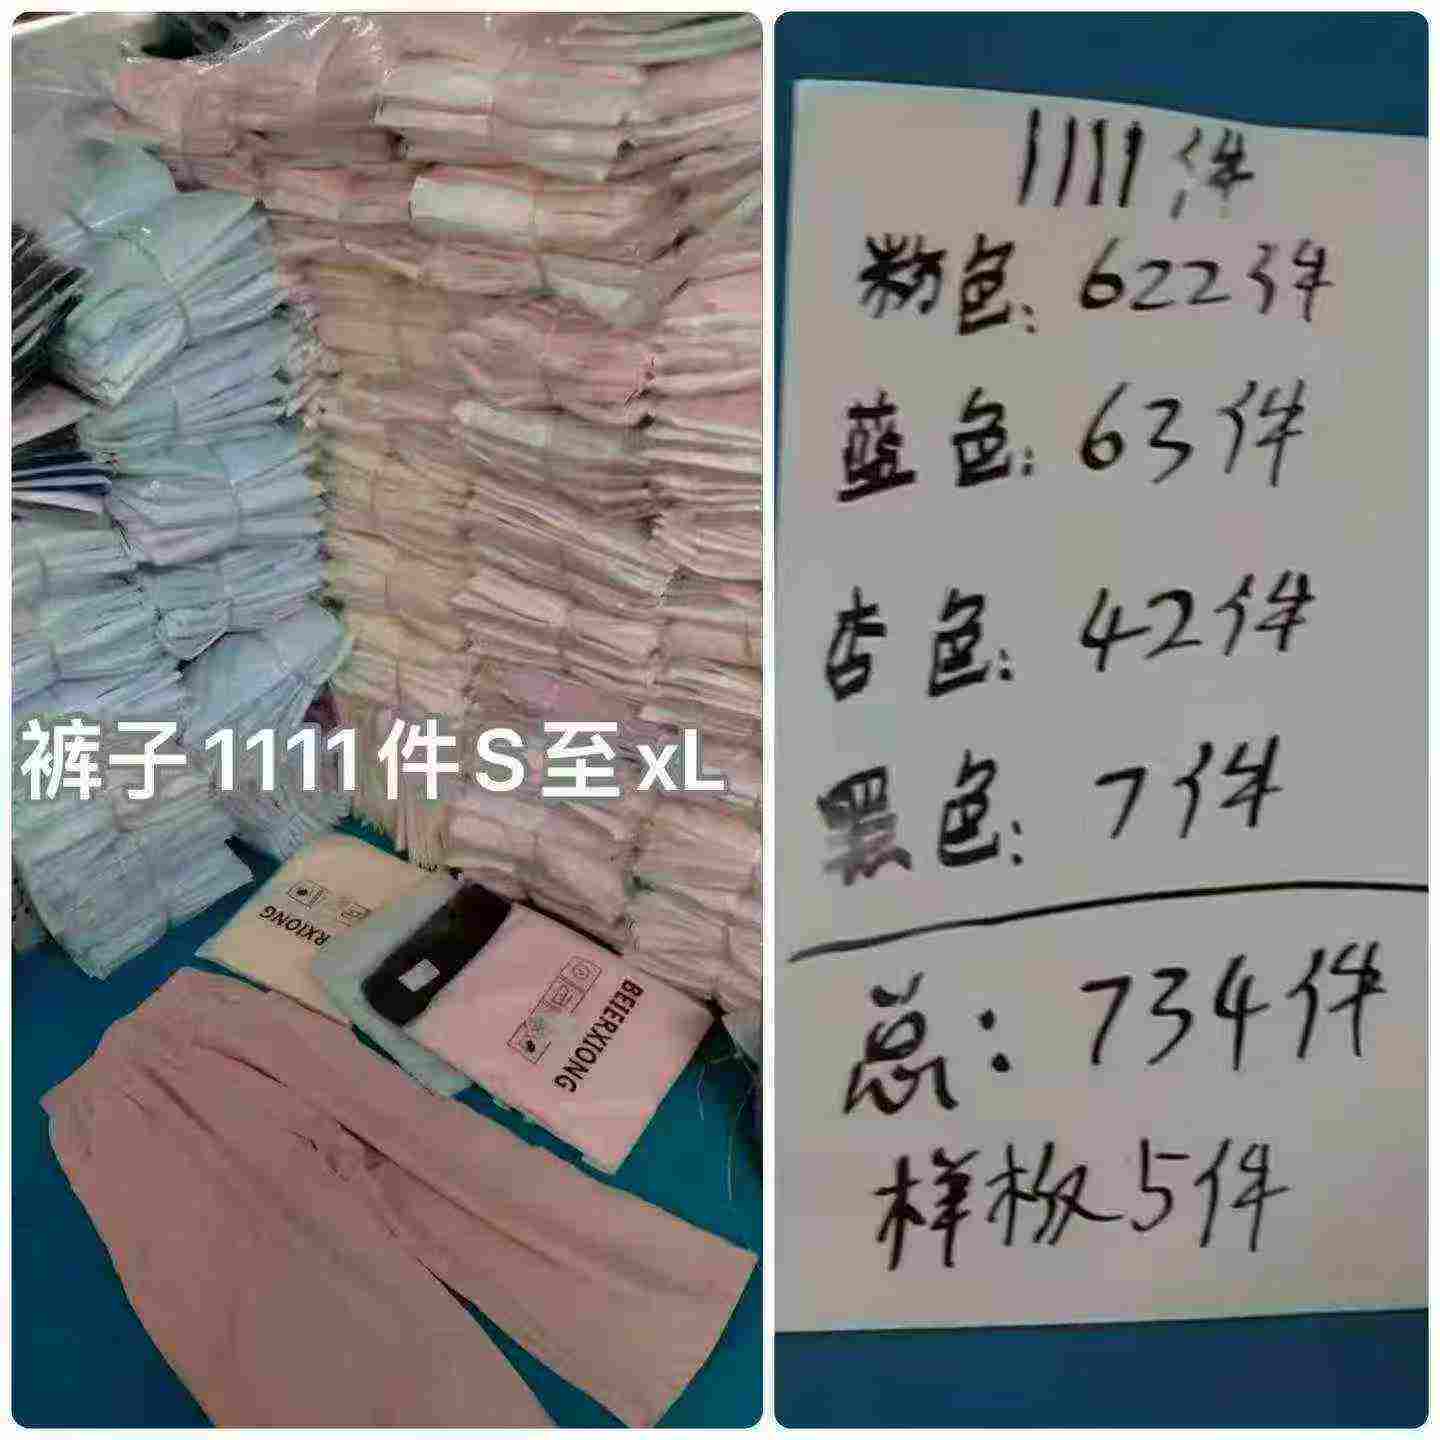 裤子1111件S至xL
RXIONG
BEIERXIONG
1111件
粉色:622件
蓝色:63件
杏色:42件
黑色:7件
总:734件
样板5件